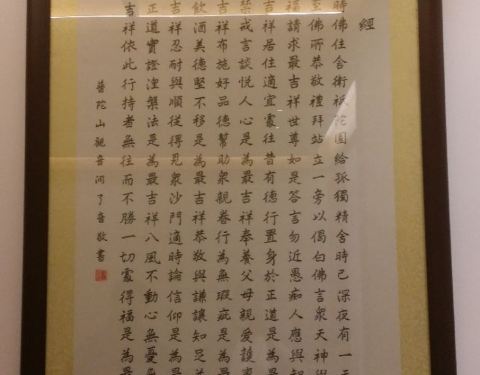 經
時佛住舍衛祇陀園給孤獨精舍時已深夜有一
至佛所恭敬禮拜站立一旁以偈白佛言眾天神與
福請求最吉祥世尊如是答言勿近愚痴人應與智
吉祥居住適宜處往昔有德行置身於正道是為最
禁戒言談悅人心是為最吉祥奉養父母親愛護妻
吉祥布施好品德幫助眾親眷行為無瑕疵是為最
飲酒美德堅不移是為最吉祥恭敬與謙讓知足
吉祥忍耐與順從得見眾沙門適時論信仰是為最
正道實證涅槃法是為最吉祥八風不動心無憂
吉祥依此行持者無往而不勝一切處得福是為最
普陀山觀音洞了音敬書